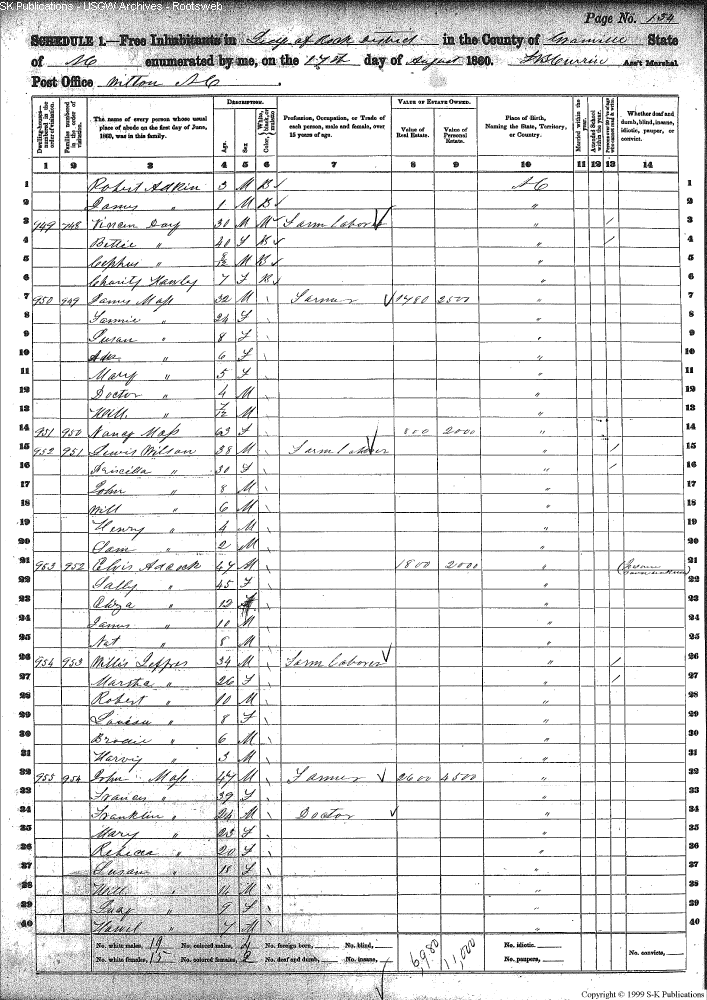 SK Publications - USGW Archives - Rootsweb
Page No. 134
SCHEDULE 1.—Free Inhabitants in District in the County of Granville State
of NC enumerated by me, on the 17th day of August 1860. Ass't Marshal
Post Office NC
Dwelling-houses—numbered in the order of visitation.
Families numbered in the order of visitation.
The name of every person whose usual place of abode on the first day of June, 1860, was in this family.
DESCRIPTION.
Age.
Sex
Color,
Profession, Occupation, or Trade of each person, male and female, over 15 years of age.
VALUE OF ESTATE OWNED.
Value of Real Estate.
Value of Personal Estate.
Place of Birth, Naming the State, Territory, or Country.
Married within the year.
Attended School within the year.
Whether deaf and dumb, blind, insane, idiotic, pauper, or convict.
1 2 3 4 5 6 7 8 9 10 11 12 13 14
1 Robert Adkin 3 M B NC 1
2 James " 1 M B " 2
3 949 748 Day 30 M M Farm laborer " / 3
4 Bettie " 40 F B " / 4
5 Cephus " M B " 5
6 Charity Hawley 7 F B 6
7 950 949 James Moss 32 M Farmer 1480 2500 " 7
8 Fannie " 24 F " 8
9 Susan " 8 F " 9
10 " 6 F " 10
11 Mary " 5 F " 11
12 Doctor " 4 M " 12
13 Will " M " 13
14 951 950 Nancy Moss 63 F 800 2000 " 14
15 952 951 Lewis Wilson 38 M Farm laborer " / 15
16 Priscilla " 30 F " / 16
17 John " 8 M " 17
18 Will " 6 M " 18
19 Henry " 4 M " 19
20 Sam " 2 M " 20
21 953 952 Elvis Adcock 47 M 1800 2000 " 21
22 Sally " 45 F " 22
23 " 12 " 23
24 James " 10 M " 24
25 Nat " 8 M " 25
26 954 953 Willis Jeffres 34 M Farm laborer " / 26
27 Martha " 26 F " / 27
28 Robert " 10 M " 28
29 " 8 F " 29
30 Brodie " 6 M " 30
31 Harvy " 3 M " 31
32 955 954 John Moss 47 M Farmer 2600 4500 " 32
33 Frances " 39 F " 33
34 Franklin " 24 M Doctor " 34
35 Mary " 23 F " 35
36 Rebecca " 20 F " 36
37 Susan " 18 F " 37
38 Will " 14 M " 38
39 " 9 F " 39
40 " 7 M " 40
No. white males, 19 No. colored males, 4 No. foreign born, No. blind, 6980 11,000 No. idiotic.
No. white females, 15 No. colored females, 2 No. deaf and dumb, No. insane, No. paupers, No. convicts,
Copyright © 1999 S-K Publications